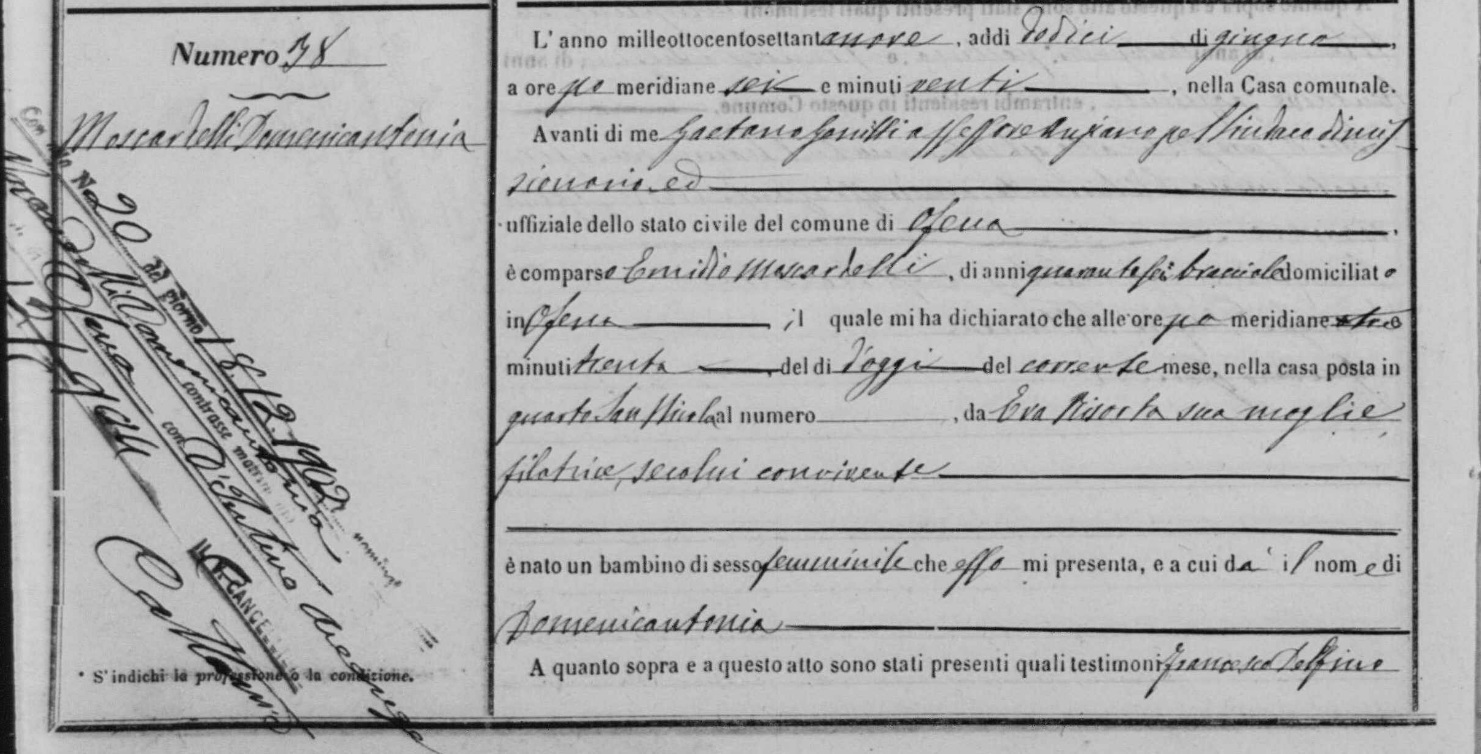 Numero 38
Moscardelli Domenicantonia
L'anno milleottocentosettantanove, addì dodici di giugno,
a ore po meridiane sei e minuti venti, nella Casa comunale.
Avanti di me Gaetano assessore anziano pel Sindaco dimis-
sionario, ed
uffiziale dello stato civile del comune di Ofena,
è comparso Emidio Moscardelli, di anni quarantasei bracciale domiciliato
in Ofena, il quale mi ha dichiarato che alle ore po meridiane tre
minuti trenta, del dì d'oggi del corrente mese, nella casa posta in
quarto San Nicola al numero, da Eva Risorta sua moglie
filatrice, secolui convivente
è nato un bambino di sesso femminile che esso mi presenta, e a cui dà il nome di
Domenicantonia
A quanto sopra e a questo atto sono stati presenti quali testimoni Francesco Delfino
Con No 20 del giorno 18/12 1902
Moscardelli Domenicantonia
contrasse matrimonio
Ofena con D'Intino
IL CANCELLIERE
* S'indichi la professione o la condizione.